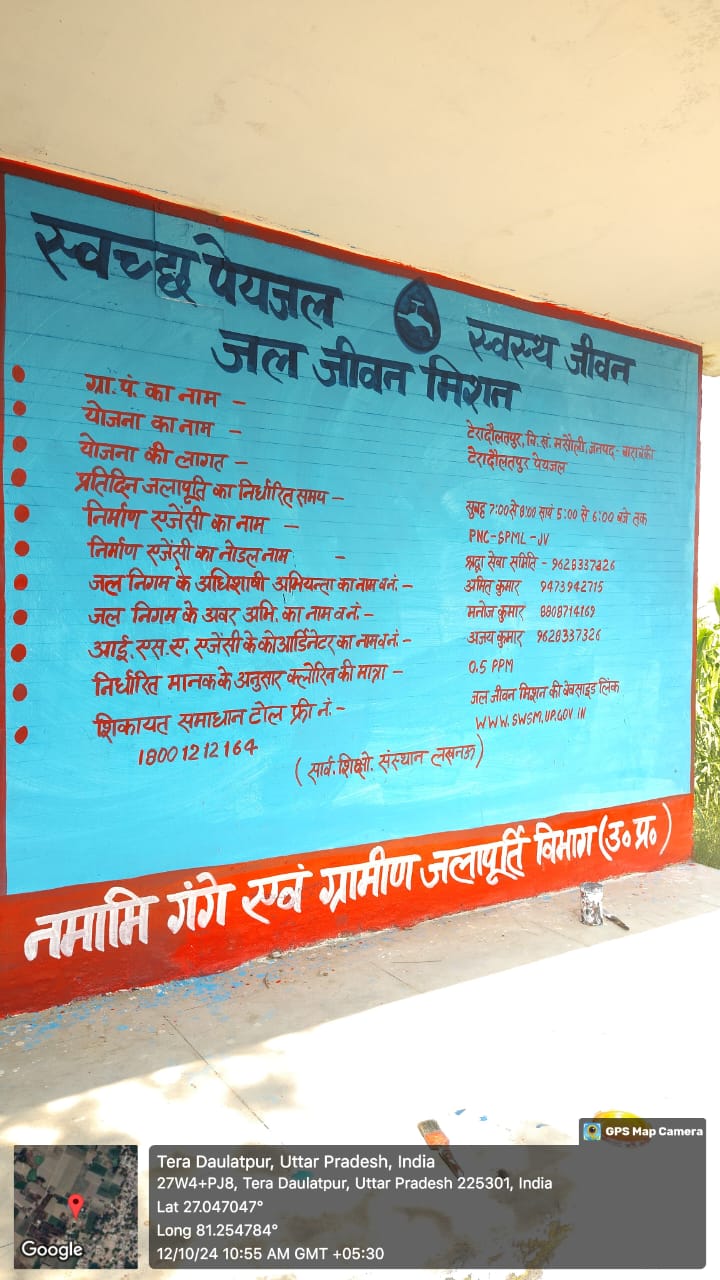 स्वच्छ पेयजल स्वस्थ जीवन
जल जीवन मिशन
ग्रा. पं. का नाम – टेरादौलतपुर, वि.सं. मसौली, जनपद- बाराबंकी
योजना का नाम – टेरादौलतपुर पेयजल
योजना की लागत –
प्रतिदिन जलापूर्ति का निर्धारित समय – सुबह 7:00 से 8:00 सायं 5:00 से 6:00 बजे तक
निर्माण एजेंसी का नाम – PNC-SPML-JV
निर्माण एजेंसी का नोडल नाम - श्रद्धा सेवा समिति - 9628337326
जल निगम के अधिशाषी अभियन्ता का नाम व नं. – अमित कुमार 9473942715
जल निगम के अवर अभि. का नाम व नं. – मनोज कुमार 8808714169
आई. एस. ए. एजेंसी के कोआर्डिनेटर का नाम व नं. – अजय कुमार 9628337326
निर्धारित मानक के अनुसार क्लोरिन की मात्रा – 0.5 PPM
शिकायत समाधान टोल फ्री नं. – जल जीवन मिशन की वेबसाइड लिंक
1800 12 12 164 WWW.SWSM.UP.GOV.IN
(सार्व. शिक्षो. संस्थान लखनऊ)
नमामि गंगे एवं ग्रामीण जलापूर्ति विभाग (उ० प्र०)
GPS Map Camera
Google
Tera Daulatpur, Uttar Pradesh, India
27W4+PJ8, Tera Daulatpur, Uttar Pradesh 225301, India
Lat 27.047047°
Long 81.254784°
12/10/24 10:55 AM GMT +05:30